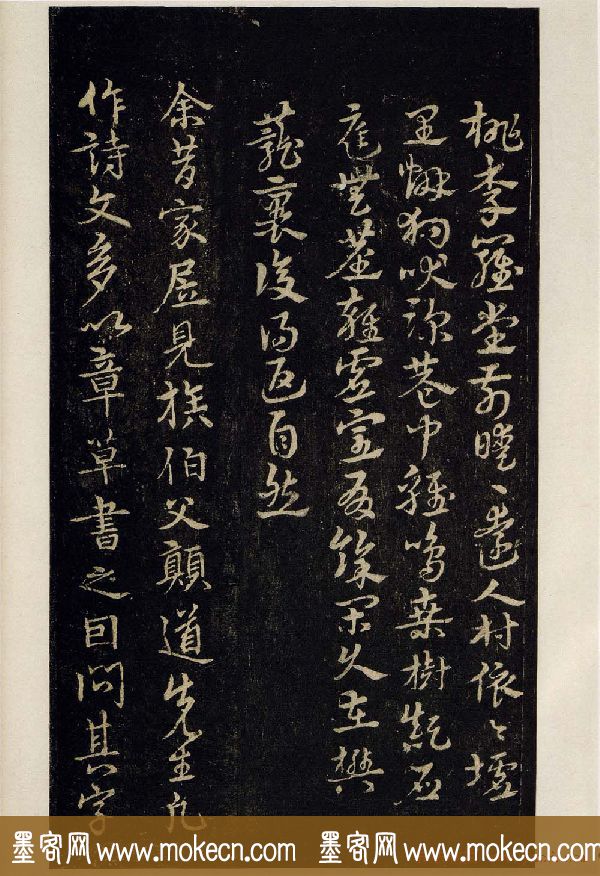 桃李羅堂前曖〻遠人村依〻墟
里烟狗吠深巷中雞鳴桑樹顛戶
庭無塵雜虛室有餘閑久在樊
蘢裏復得返自然
余昔家居見族伯父顛道先生凡
作詩文多以章草書之因問其字
墨客网 www.mokecn.com 墨客网 www.mokecn.com